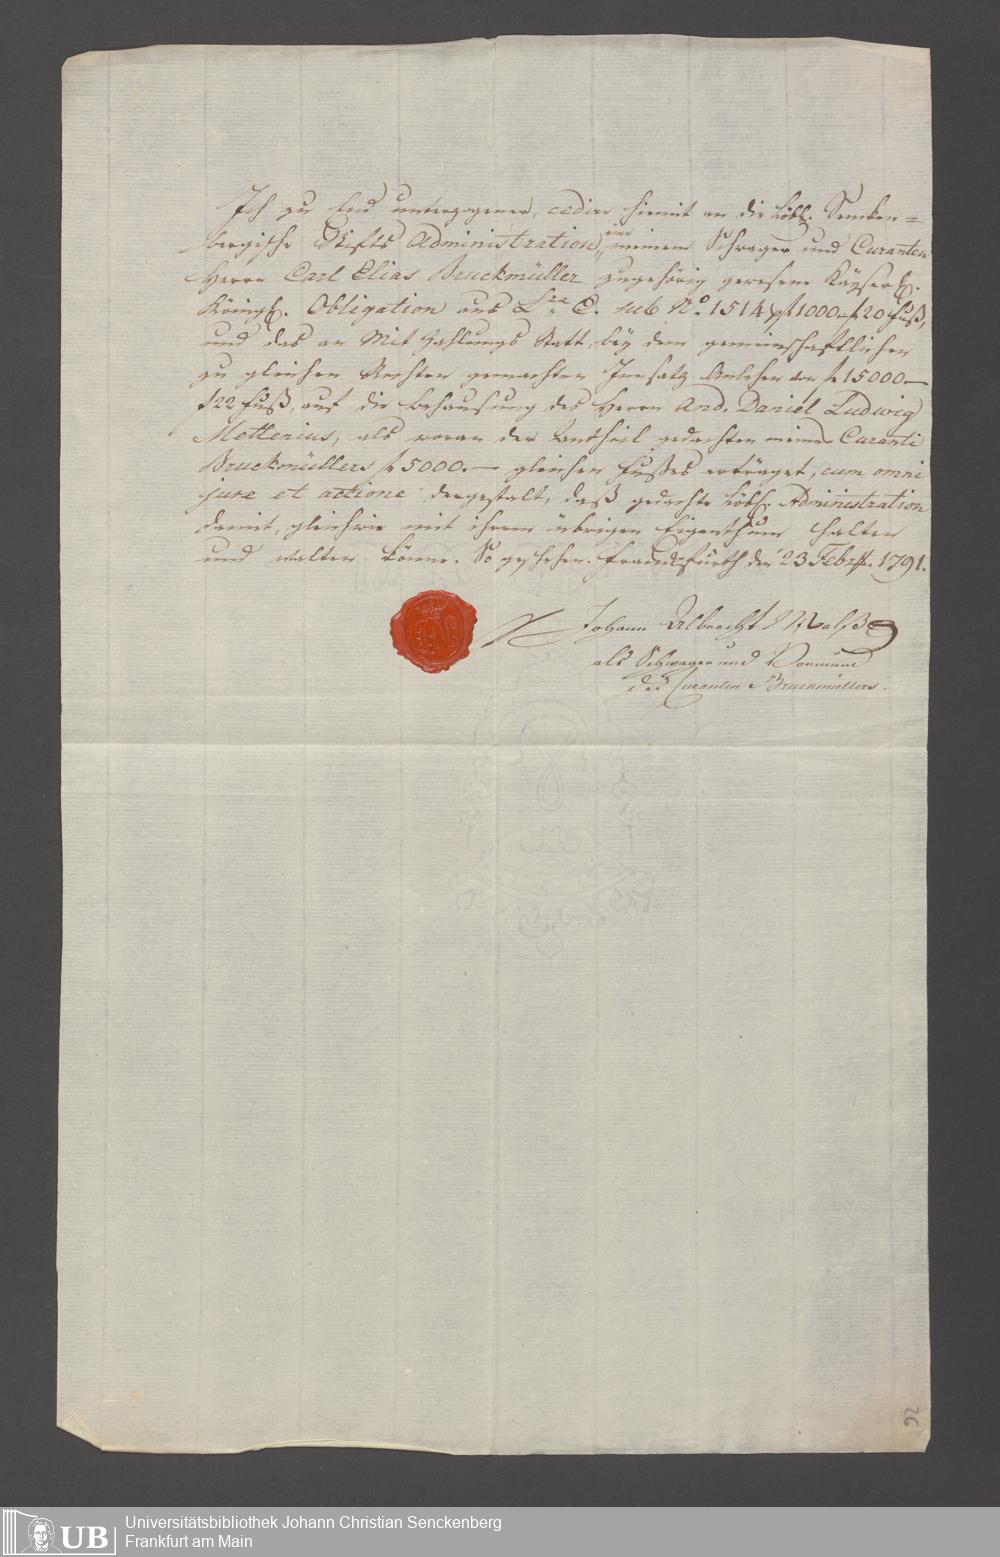 Ich zu End unterzogener, cedire hiemit an die Löbl. Sencken=
bergische Stifts Administration, eine meinem Schwager und Curanten
Herrn Carl Elias Bruckmüller zugehörig gewesene Kayserl.
Königl. Obligation aus Lra C. sub No. 1514 pf 1000 f 20 fuß,
und das an Mit Zahlungs Statt, bey dem gemeinschaftlichen
zu gleichen Rechten gemachten Insatz Anlehen von f 15000.—
f 22 fuß, auf die Behausung des Herrn And. Daniel Ludwig
Mettenius, als woran der Antheil gedachten meines Curanti
Bruckmüllers f 5000.— gleichen Fußes erträget, cum omni
jure et actione dergestalt, daß gedachte Löbl. Administration
damit, gleichwie mit ihrem übrigen Eigenthum schalten
und walten könne. So geschehen. Franckfurth den 23 Febr. 1791.
Johann Albrecht
als Schwager und Vormund
des Curanten Bruckmüllers.
92
UB Universitätsbibliothek Johann Christian Senckenberg
Frankfurt am Main